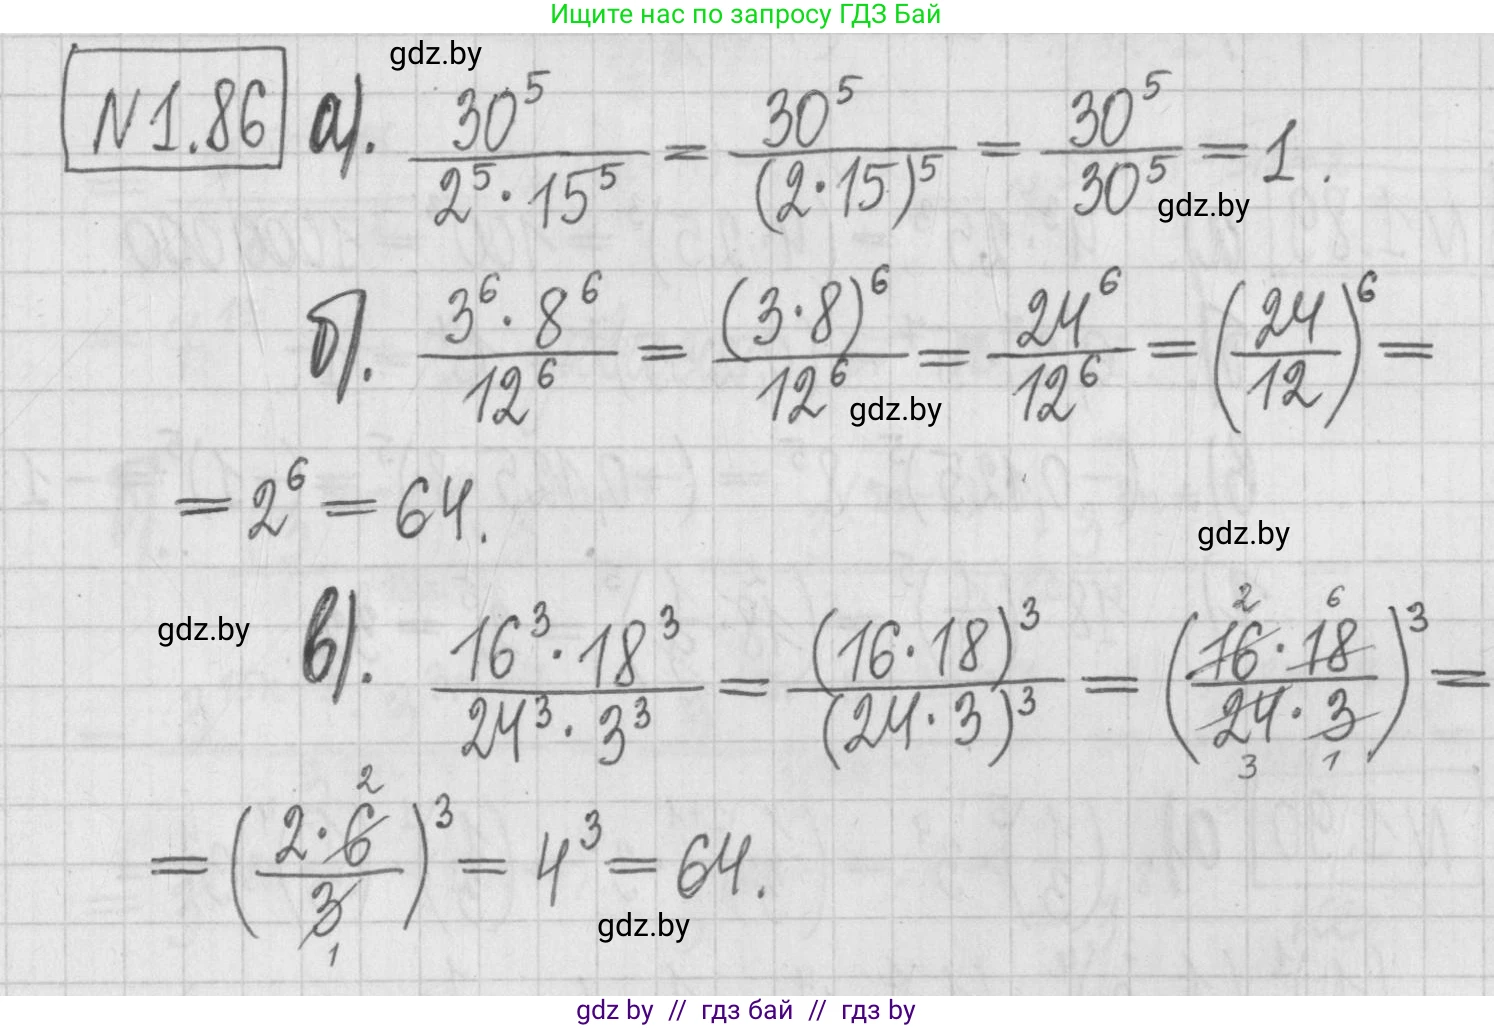 Ищите нас по запросу ГДЗ Бай
gdz.by
N1.86 а). 30^5 / (2^5 · 15^5) = 30^5 / (2·15)^5 = 30^5 / 30^5 = 1.
gdz.by
б). (3^6 · 8^6) / 12^6 = (3·8)^6 / 12^6 = 24^6 / 12^6 = (24/12)^6 =
gdz.by
= 2^6 = 64.
gdz.by
gdz.by
в). (16^3 · 18^3) / (24^3 · 3^3) = (16·18)^3 / (24·3)^3 = (16 2 · 18 6 / 24 3 · 3 1)^3 =
= (2·6 2 / 3 1)^3 = 4^3 = 64.
gdz.by
gdz by // гдз бай // гдз by